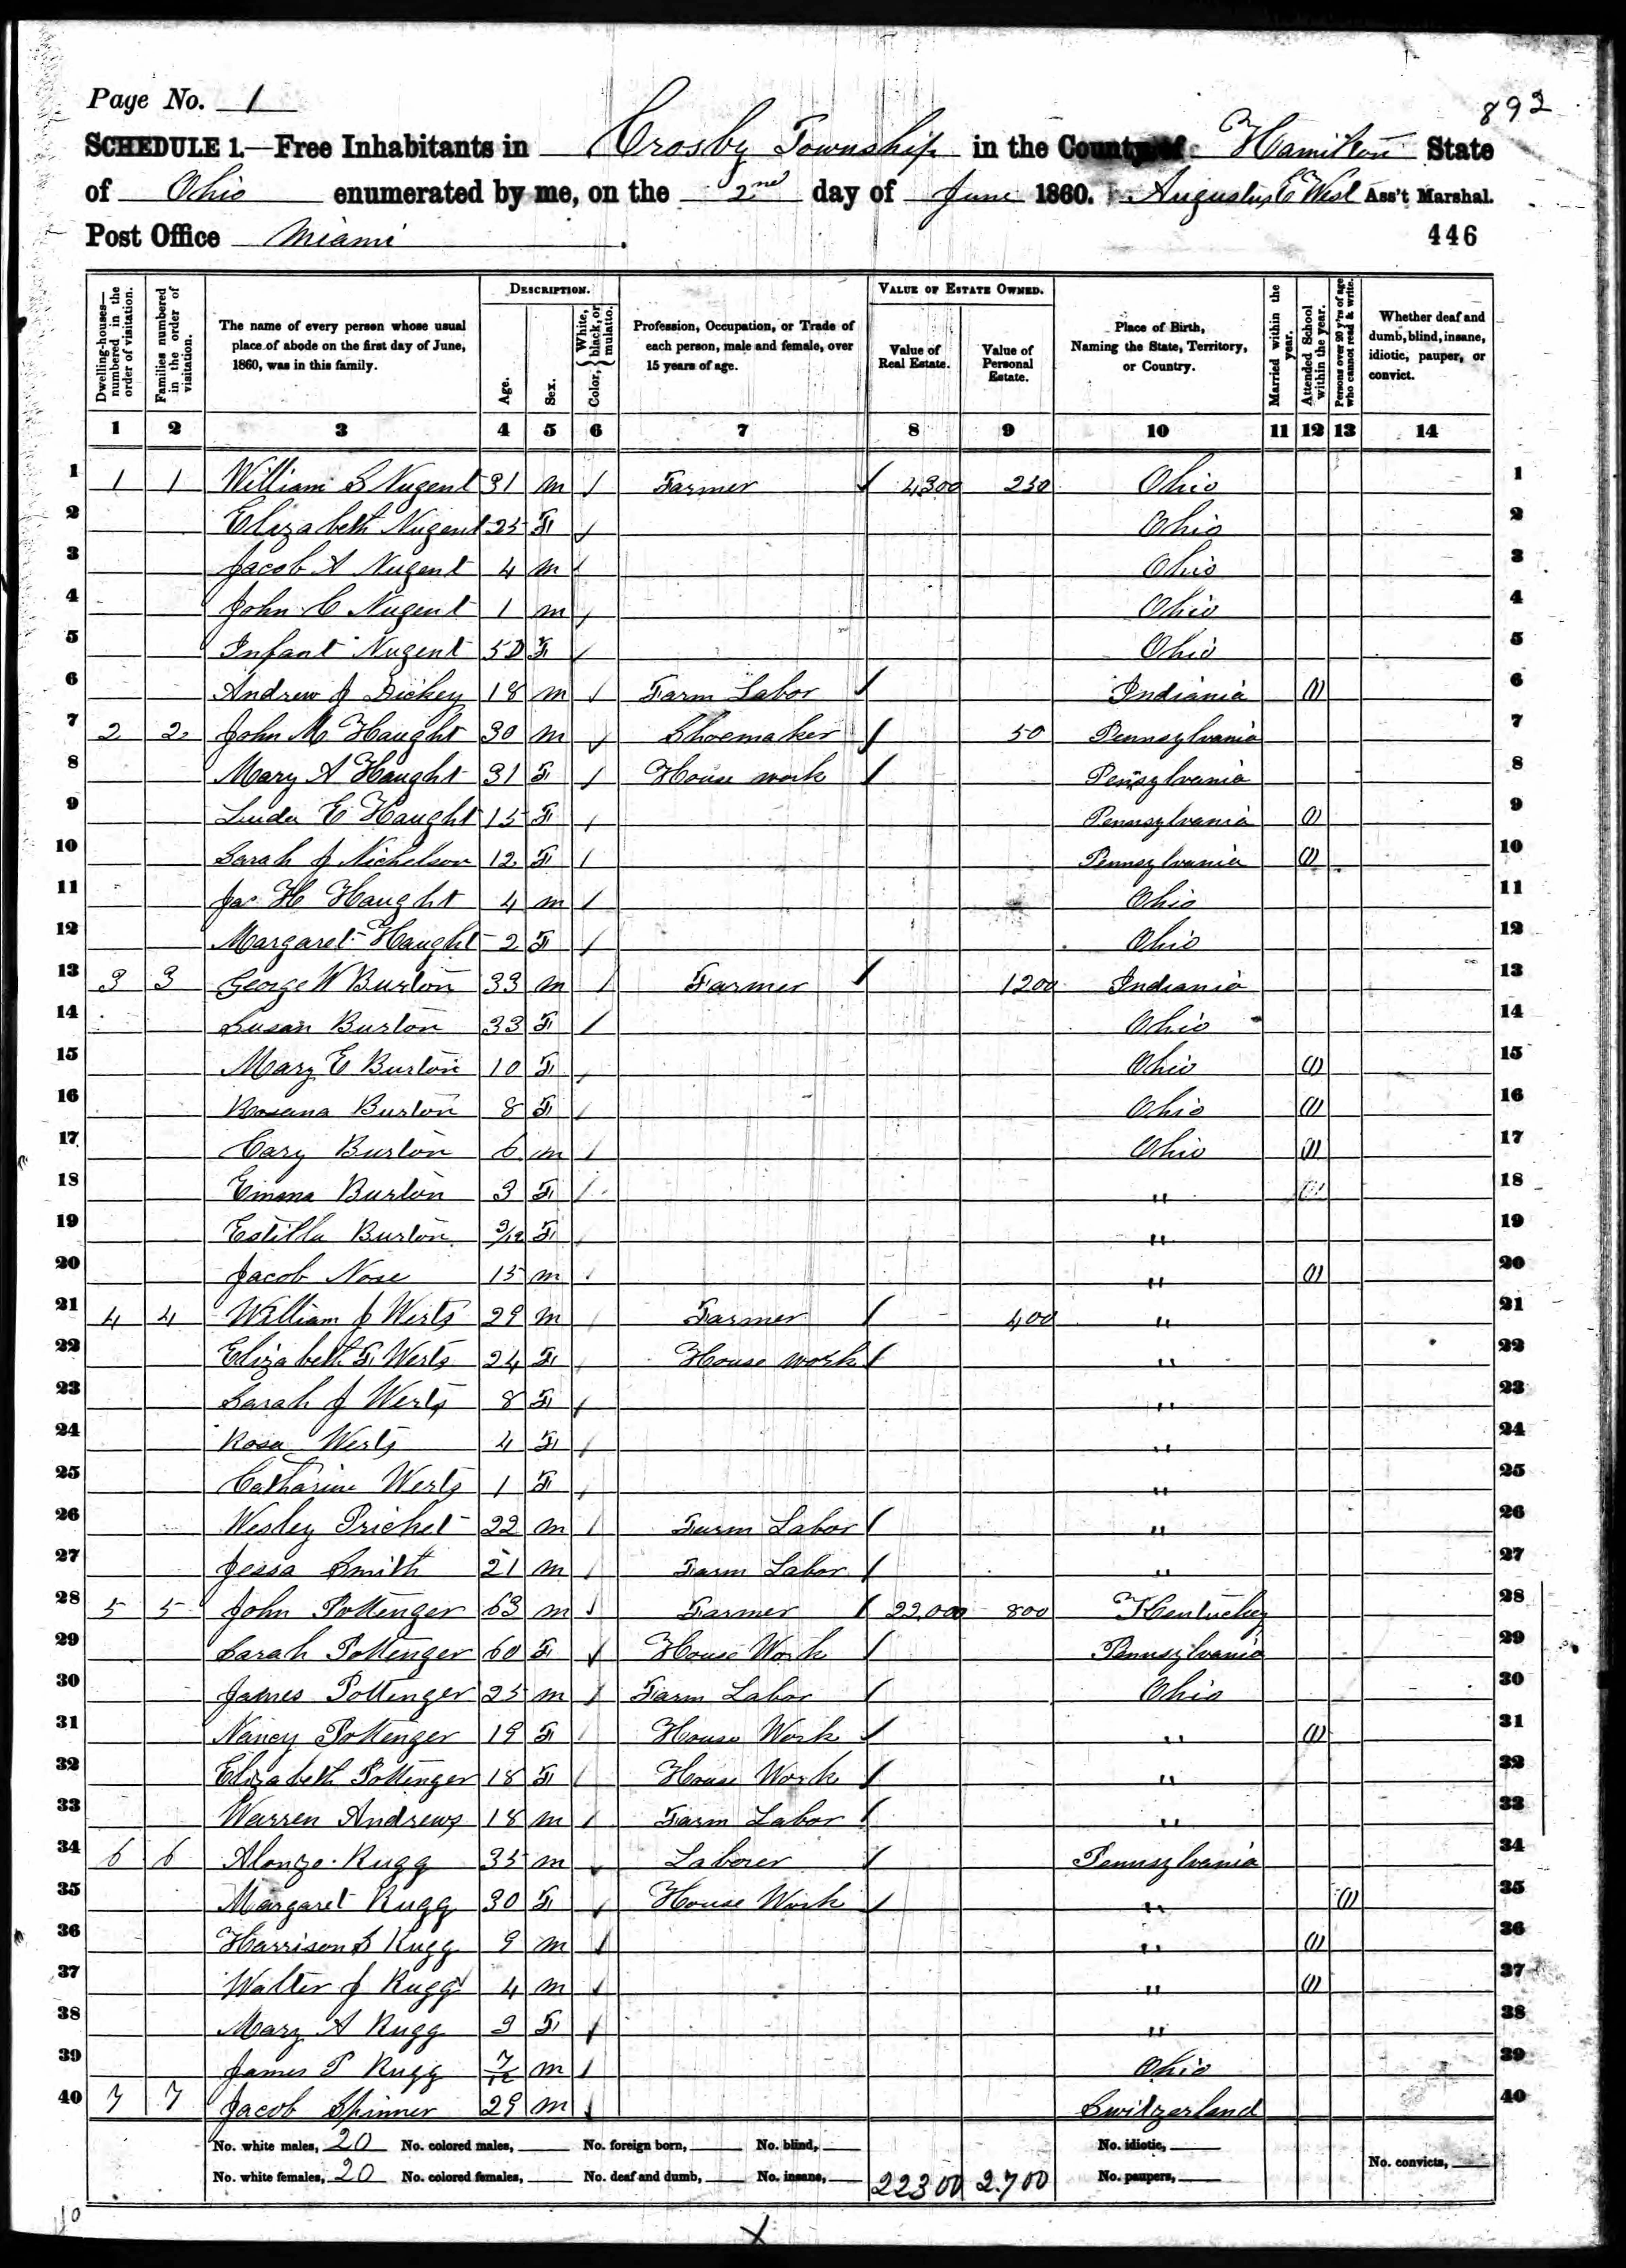 Page No. 1
892
SCHEDULE 1.—Free Inhabitants in Crosby Township in the County of Hamilton State
of Ohio enumerated by me, on the 2nd day of June 1860. Augustus C West Ass't Marshal.
Post Office Miami . 446
Dwelling-houses—numbered in the order of visitation.
Families numbered in the order of visitation.
The name of every person whose usual place of abode on the first day of June, 1860, was in this family.
DESCRIPTION.
Age.
Sex.
Color, { White, black, or mulatto.
Profession, Occupation, or Trade of each person, male and female, over 15 years of age.
VALUE OF ESTATE OWNED.
Value of Real Estate.
Value of Personal Estate.
Place of Birth, Naming the State, Territory, or Country.
Married within the year.
Attended School within the year.
Persons over 20 y'rs of age who cannot read & write.
Whether deaf and dumb, blind, insane, idiotic, pauper, or convict.
1 2 3 4 5 6 7 8 9 10 11 12 13 14
1 1 1 William S Nugent 31 m / Farmer / 4300 250 Ohio 1
2 Elizabeth Nugent 25 F / Ohio 2
3 Jacob A Nugent 4 m / Ohio 3
4 John C Nugent 1 m / Ohio 4
5 Infant Nugent 5D F / Ohio 5
6 Andrew J Dickey 18 m / Farm Labor / Indiania (1) 6
7 2 2 John M Haught 30 m / Shoemaker / 50 Pennsylvania 7
8 Mary A Haught 31 F / House work / Pensylvania 8
9 E Haught 15 F / Pennsylvania (1) 9
10 Sarah J Nichelson 12 F / Pennsylvania (1) 10
11 Jas H Haught 4 m / Ohio 11
12 Margaret Haught 2 F / Ohio 12
13 3 3 George W Burton 33 m / Farmer / 1200 Indiania 13
14 Susan Burton 33 F / Ohio 14
15 Mary E Burton 10 F / Ohio (1) 15
16 Roseana Burton 8 F / Ohio (1) 16
17 Cary Burton 6 m / Ohio (1) 17
18 Emma Burton 3 F / " (1) 18
19 Estilla Burton 3/12 F " 19
20 Jacob Nose 15 m / " (1) 20
21 4 4 William J Werts 29 m / Farmer / 400 " 21
22 Elizabeth F Werts 24 F / House work / " 22
23 Sarah J Werts 8 F / " 23
24 Rosa Werts 4 F / " 24
25 Catharine Werts 1 F / " 25
26 Wesley Prichet 22 m / Farm Labor / " 26
27 Jessa Smith 21 m / Farm Labor / " 27
28 5 5 John Pottenger 63 m / Farmer / 22,000 800 Kentucky 28
29 Sarah Pottenger 60 F / House Work / Pennsylvania 29
30 James Pottenger 25 m / Farm Labor / Ohio 30
31 Nancy Pottenger 19 F / House Work / " (1) 31
32 Elizabeth Pottenger 18 F / House Work / " 32
33 Warren Andrews 18 m / Farm Labor / " 33
34 6 6 Alonzo Rugg 35 m / Laborer / Pennsylvania 34
35 Margaret Rugg 30 F / House Work / " (1) 35
36 Harrison S Rugg 9 m / " (1) 36
37 Walter J Rugg 4 m / " (1) 37
38 Mary A Rugg 3 F / " 38
39 James P Rugg 7/12 m / Ohio 39
40 7 7 Jacob Spinner 29 m / Switzerland 40
No. white males, 20 No. colored males, No. foreign born, No. blind, No. idiotic,
No. white females, 20 No. colored females, No. deaf and dumb, No. insane, 22300 2.700 No. paupers, No. convicts,
10
X